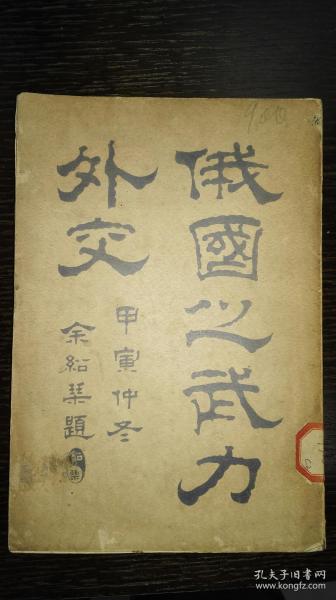 俄國之武力
外交
甲寅仲冬
余紹琹題
孔夫子旧书网